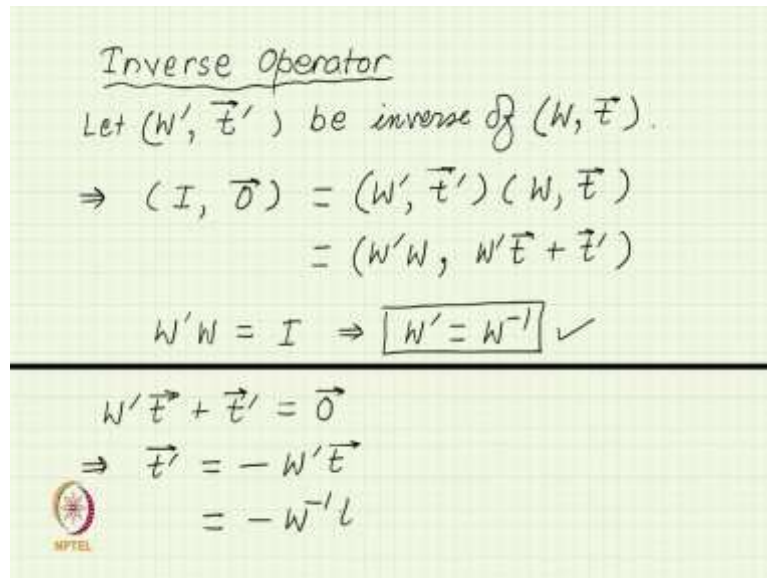 Inverse Operator
Let (W′, t⃗′) be inverse of (W, t⃗).
⇒ (I, 0⃗) = (W′, t⃗′)(W, t⃗)
= (W′W, W′t⃗ + t⃗′)
W′W = I ⇒ W′ = W⁻¹ ✓
W′t⃗ + t⃗′ = 0⃗
⇒ t⃗′ = − W′t⃗
= − W⁻¹ l
NPTEL